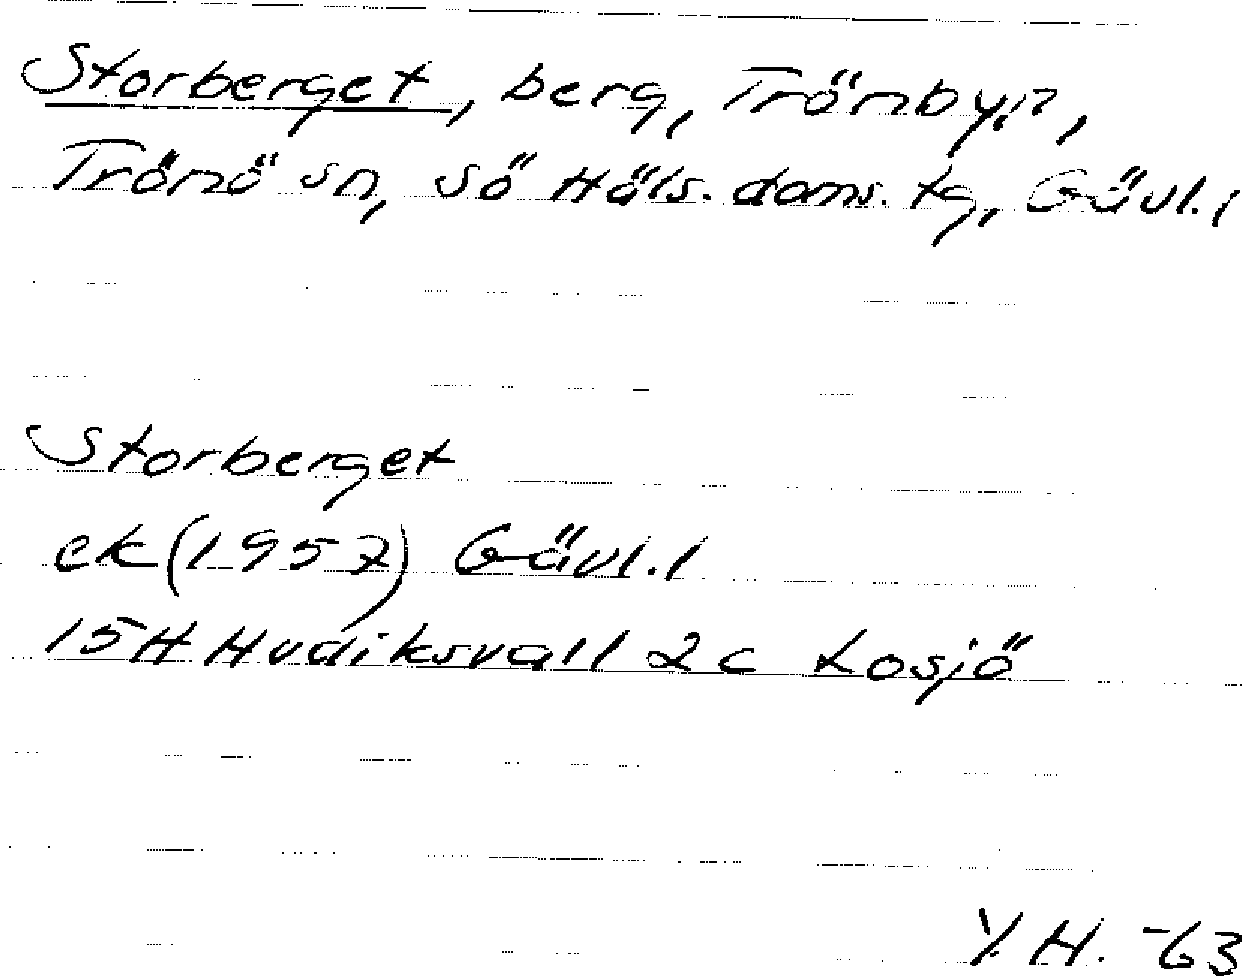 Storberget, berg, Trönbyn,
Trönö sn, Sö Häls. doms. tg, Gävl. l
Storberget
ek (1957) Gävl. l
15H Hudiksvall 2c Losjö
Y. H. -63